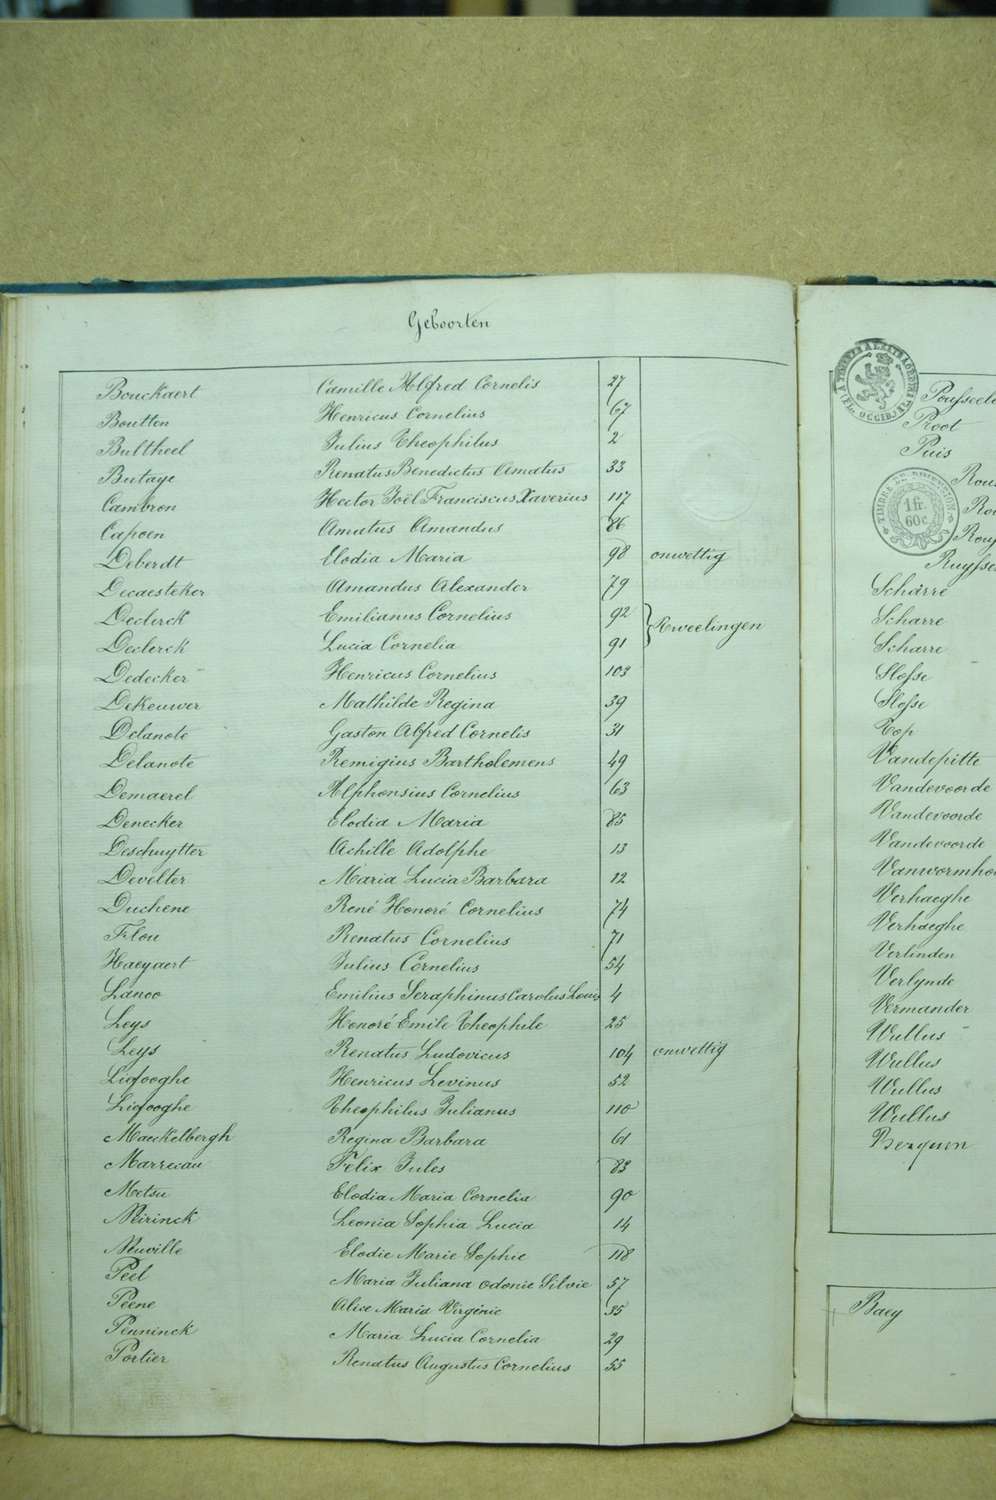 Geboorten
Bouckaert Camille Alfred Cornelis 27
Boutten Henricus Cornelius 67
Bultheel Julius Theophilus 2
Butaye Renatus Benedictus Amatus 33
Cambron Hector Joël Franciscus Xaverius 117
Capoen Amatus Amandus 86
Deberdt Elodia Maria 98 onwettig
Decaesteker Amandus Alexander 79
Declerck Emilianus Cornelius 92
Tweelingen
Declerck Lucia Cornelia 91
Dedecker Henricus Cornelius 103
DeKeuwer Mathilde Regina 39
Delanote Gaston Alfred Cornelis 31
Delanote Remigius Bartholemens 49
Demaerel Alphonsius Cornelius 63
Denecker Elodia Maria 85
Deschuytter Achille Adolphe 13
Develter Maria Lucia Barbara 12
Duchene René Honoré Cornelius 74
Flou Renatus Cornelius 71
Haeyaert Julius Cornelius 54
Lanoo Emilius Seraphinus Carolus Louis 4
Leys Honoré Emile Theophile 25
Leys Renatus Ludovicus 104 onwettig
Liefooghe Henricus Levinus 52
Liefooghe Theophilus Julianus 110
Maeckelbergh Regina Barbara 61
Marrecau Felix Jules 83
Metsu Elodia Maria Cornelia 90
Meirinck Leonia Sophia Lucia 14
Neuville Elodie Marie Sophie 118
Peel Maria Juliana Odonie Silvie 57
Peene Alice Maria Virginie 35
Penninck Maria Lucia Cornelia 29
Portier Renatus Augustus Cornelius 55
A TIMBRER A L'EXTRAORDRE
FL. OCCID.
TIMBRE DE DIMENSION
1 fr.
60 c.
Pousseele
Proot
Puis
Rou
Rou
Rouss
Ruysse
Scharre
Scharre
Scharre
Slosse
Slosse
Top
Vandepitte
Vandevoorde
Vandevoorde
Vandevoorde
Vanwormho
Verhaeghe
Verhaeghe
Verlinden
Verlynde
Vermander
Wullus
Wullus
Wullus
Wullus
Baey